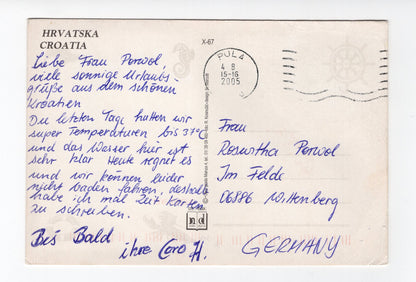 HRVATSKA
CROATIA
X-67
PULA
4 8
15-18
2005
Liebe Frau Porwol,
viele sonnige Urlaubs-
grüße aus dem schönen
Kroatien
Die letzten Tagi hatten wir
super Temperaturen bis 37°C
und das Wasser hier ist
sehr klar Heute regnet es
und wir können leider
nicht baden fahren, deshalb
habe ich mal Zeit Karten
zu schreiben.
Bis Bald
ihre Caro H.
Frau
Roswitha Porwol
Im Felde
06886 Wittenberg
GERMANY
nd